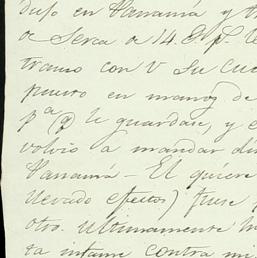 dujo en Panamá y
de Serca de 14.
tramo con V Su
puesto en manos de
pª q. le guardan, y
volvio a mandar
Panamá - El quiere
llevado efectos) fuese
otro. Ultimamente
ta infame contra mi